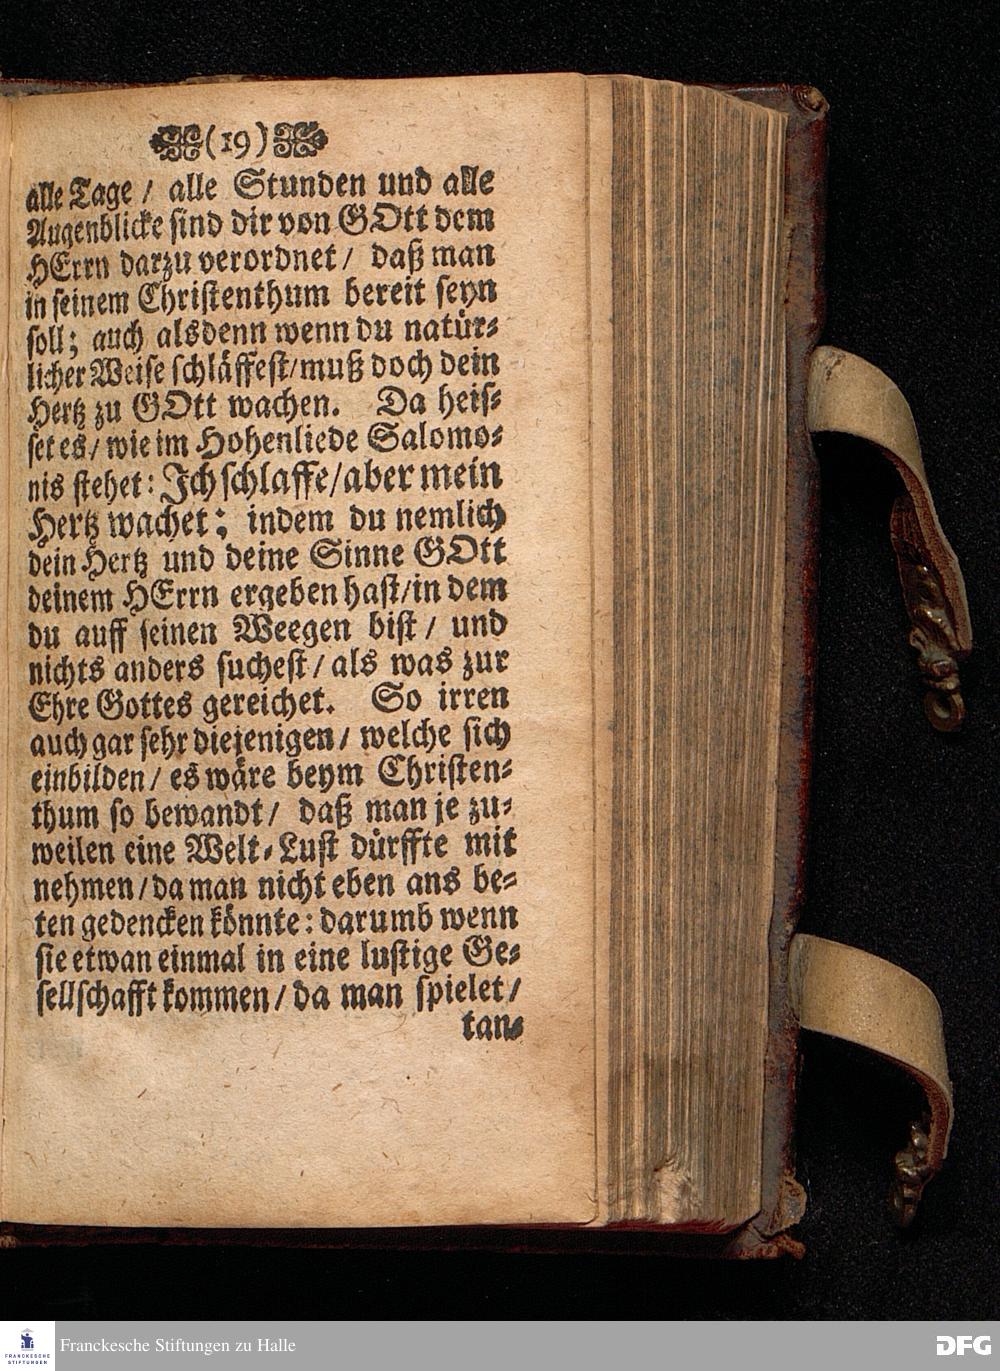 (19)
alle Tage / alle Stunden und alle
Augenblicke sind dir von GOtt dem
HErrn darzu verordnet / daß man
in seinem Christenthum bereit seyn
soll; auch alsdenn wenn du natür-
licher Weise schläffest/muß doch dein
Hertz zu GOtt wachen. Da heis-
set es/ wie im Hohenliede Salomo-
nis stehet: Ich schlaffe/aber mein
Hertz wachet; indem du nemlich
dein Hertz und deine Sinne GOtt
deinem HErrn ergeben hast/in dem
du auff seinen Weegen bist / und
nichts anders suchest / als was zur
Ehre Gottes gereichet. So irren
auch gar sehr diejenigen / welche sich
einbilden / es wäre beym Christen-
thum so bewandt / daß man je zu-
weilen eine Welt-Lust dürffte mit
nehmen / da man nicht eben ans be-
ten gedencken könnte: darumb wenn
sie etwan einmal in eine lustige Ge-
sellschafft kommen / da man spielet /
tan-
FRANCKESCHE
STIFTUNGEN
Franckesche Stiftungen zu Halle
DFG